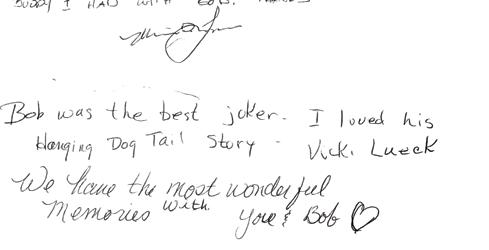 I HAD WITH
Bob was the best joker. I loved his
Hanging Dog Tail Story - Vicki Lueck
We have the most wonderful
Memories with you & Bob ♡